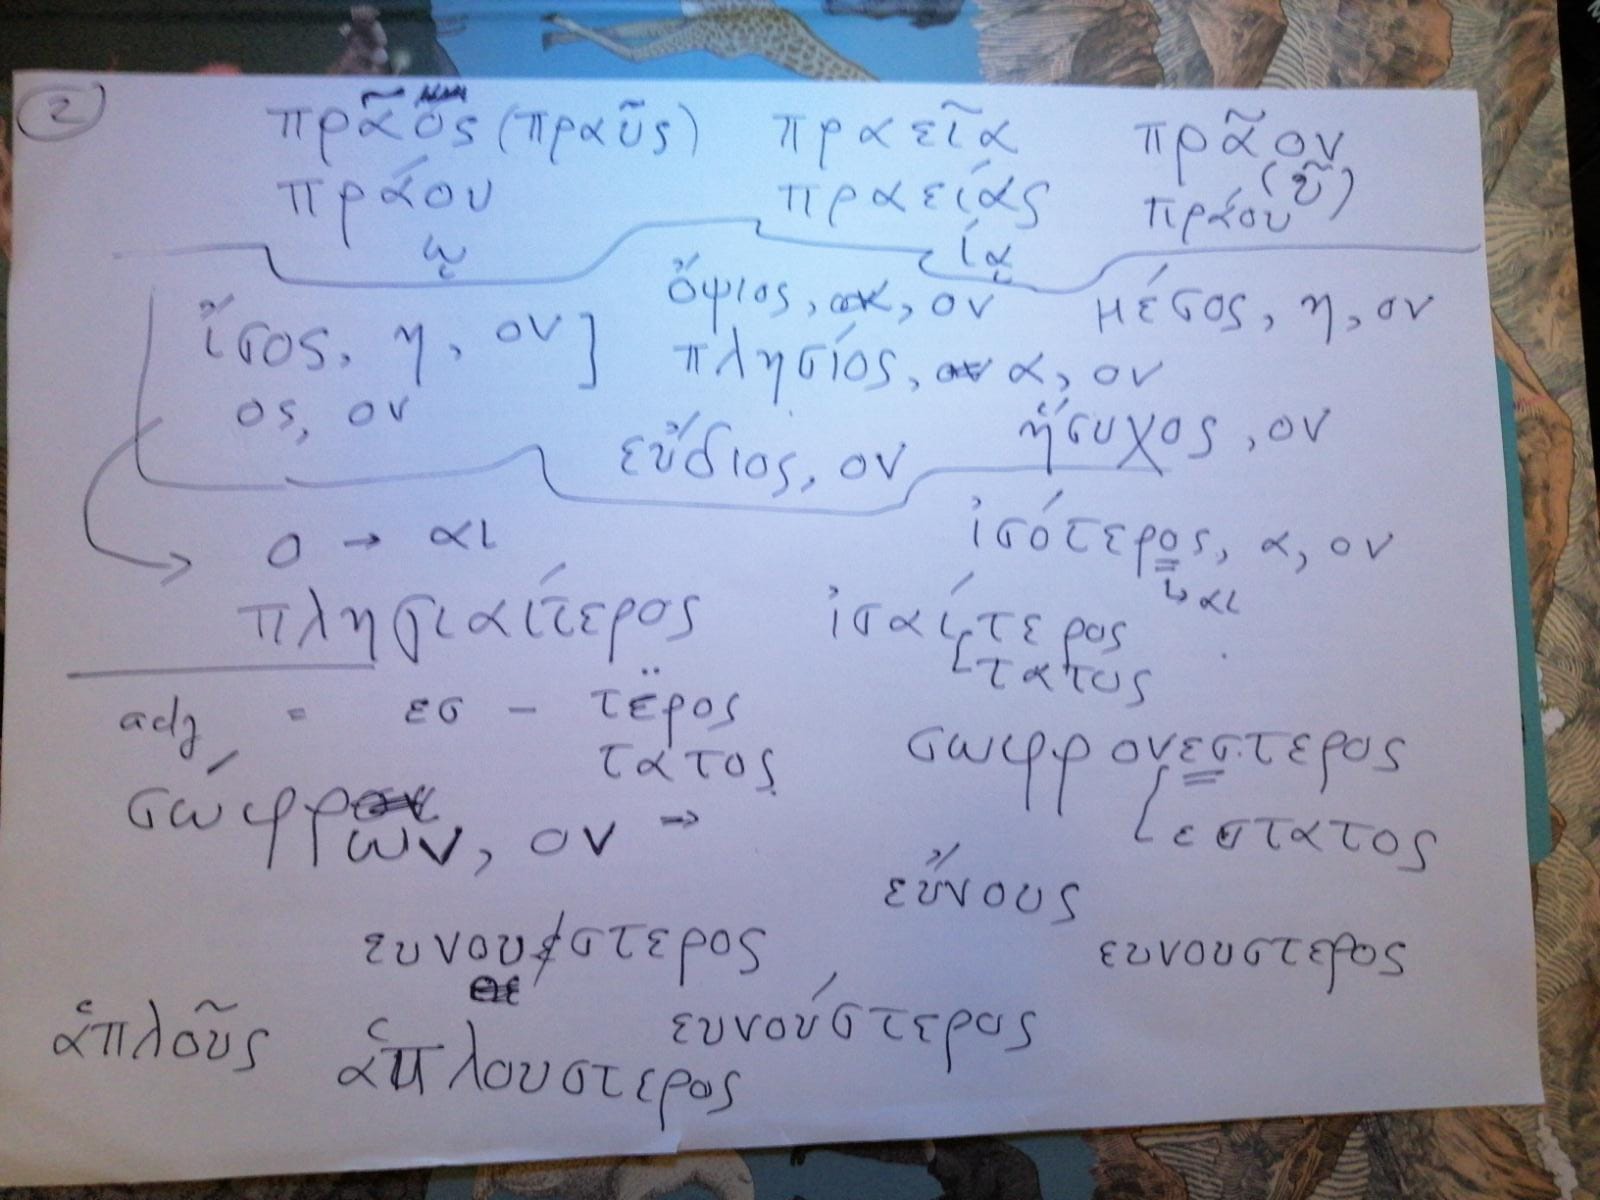 2
πρᾶος (πραῢς) πραεῖα πρᾶον
(ῢ)
πράου πραείας πράου
ῳ ίᾳ
ἴσος, η, ον] ὄψιος, α, ον μέσος, η, ον
ος, ον πλησίος, α, ον
εὔδιος, ον ἥσυχος, ον
ο → αι ἰσότερος, α, ον
↳ αι
πλησιαίτερος ἰσαίτερος
τατος
adj = εσ - τερος
τατος σωφρονεστερος
σώφρων, ον → εστατος
εὔνους
ευνουστερος ευνουστερος
ευνούστερος
ἁπλοῦς ἁπλουστερος